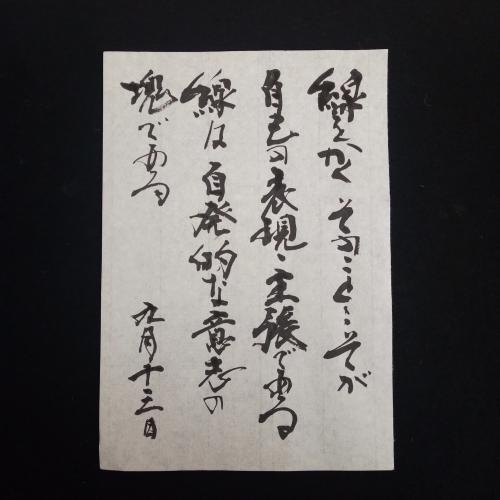 線をかくそのことこそが
自己の表現、主張である
線は自発的な意志の
塊である
九月十三日